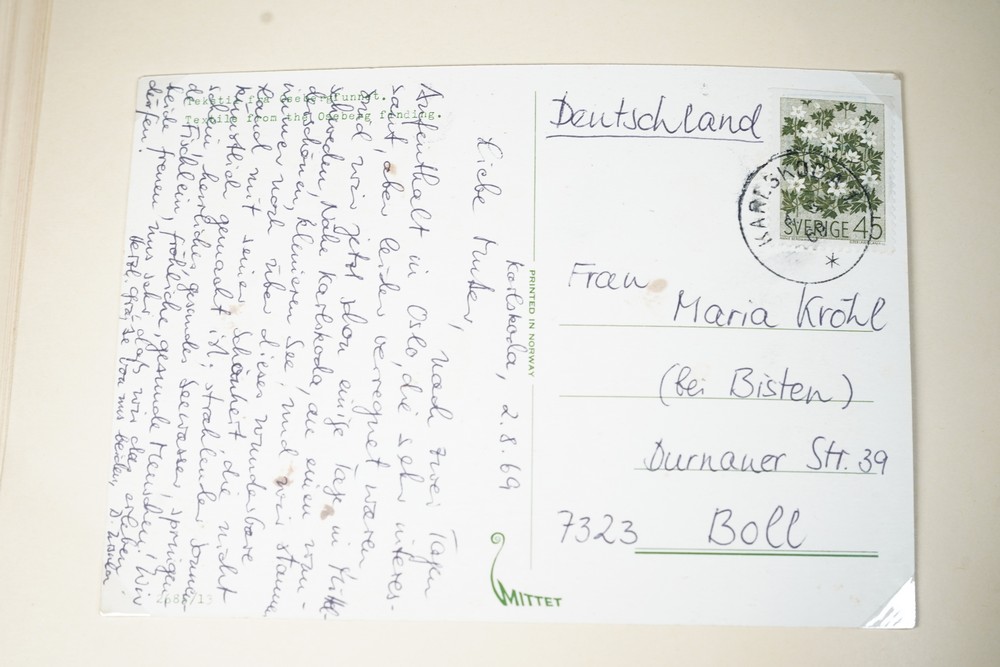 Tekstil fra Osebergfunnet.
Textile from the Oseberg finding.
Karlskoda, 2.8.69
Liebe Mutter,
nach zwei Tagen
Aufenthalt in Oslo, die sehr interes-
sant, aber leider verregnet waren
sind wir jetzt schon einige Tage in Mittel-
schweden, Nähe Karlskoda, an einem wun-
derschönen, kleineren See, und wir staunen
immer noch über dieses wunderbare
Land mit seiner Schönheit die nicht
künstlich gemacht ist; strahlender Sonnen-
schein, herrliches gesundes Seewasser, springen-
de Fischlein, fröhliche, gesunde Menschen! Wir
beide freuen uns sehr, daß wir das erleben
dürfen!
Herzl. Grüsse von uns beiden
2685/13
PRINTED IN NORWAY
MITTET
Deutschland
SVERIGE 45
KARLSKOGA
Frau
Maria Kröhl
(bei Bisten)
Durnauer Str. 39
7323 Boll